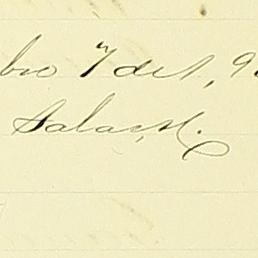 bro 7 de 1,9
Salas, M.